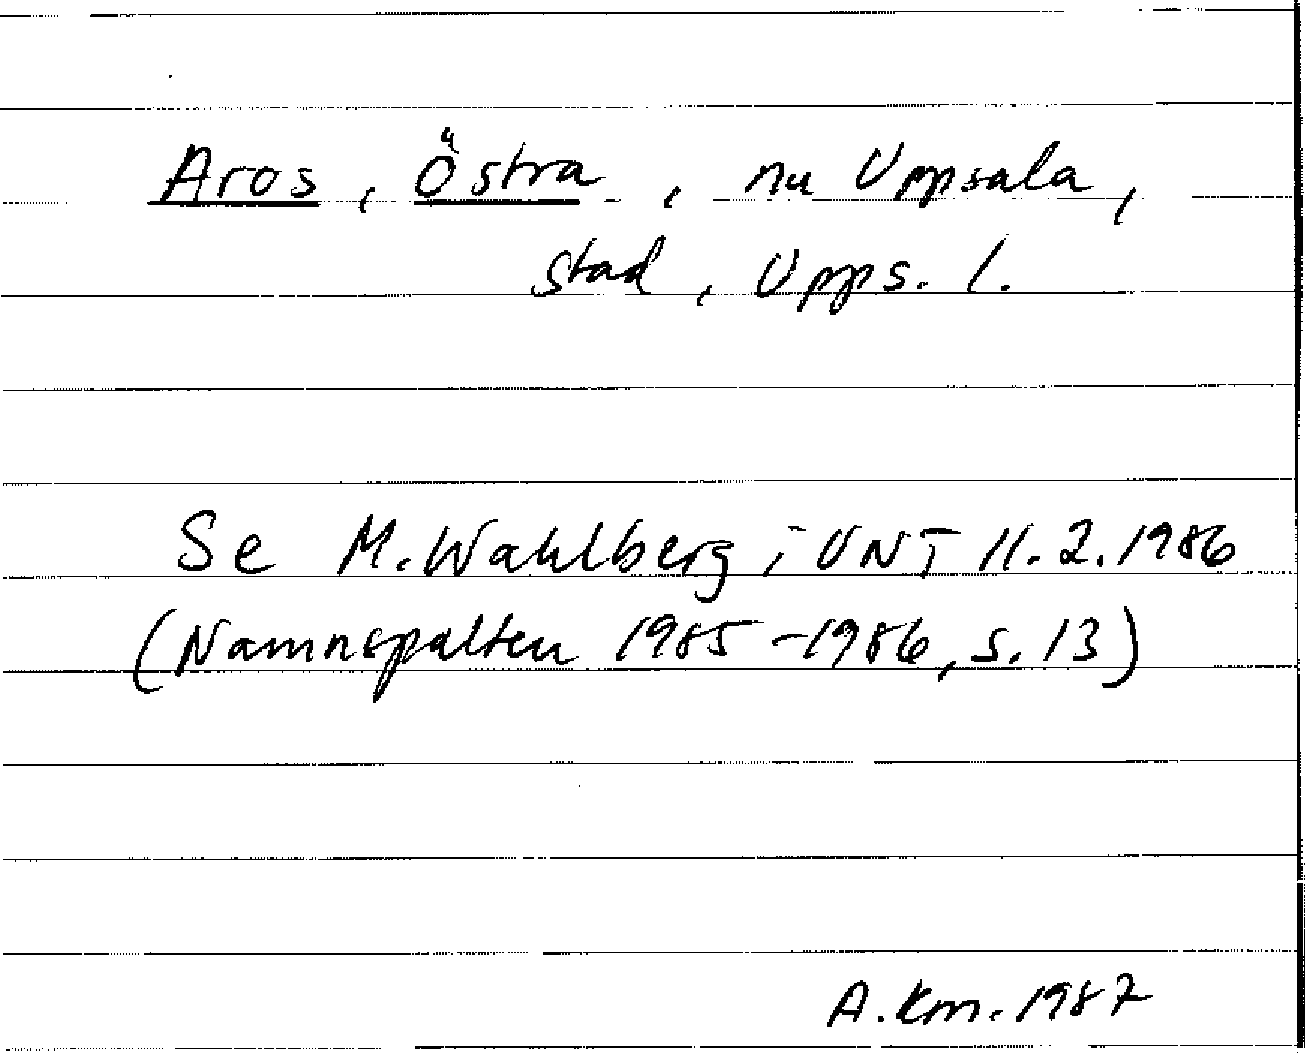 Aros, Östra, nu Uppsala,
stad, Upps. l.
Se M. Wahlberg i UNT 11.2.1986
(Namnspalten 1985-1986, s. 13)
A. Km. 1987